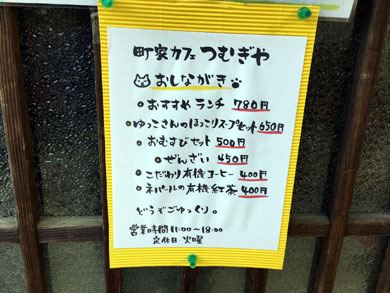 町家カフェ つむぎや
おしながき
おすすめランチ 780円
ゆっこさんのほっこりスープセット 650円
おむすびセット 500円
ぜんざい 450円
こだわり有機コーヒー 400円
ネパールの有機紅茶 400円
どうぞごゆっくり。
営業時間 11:00〜18:00
定休日・火曜